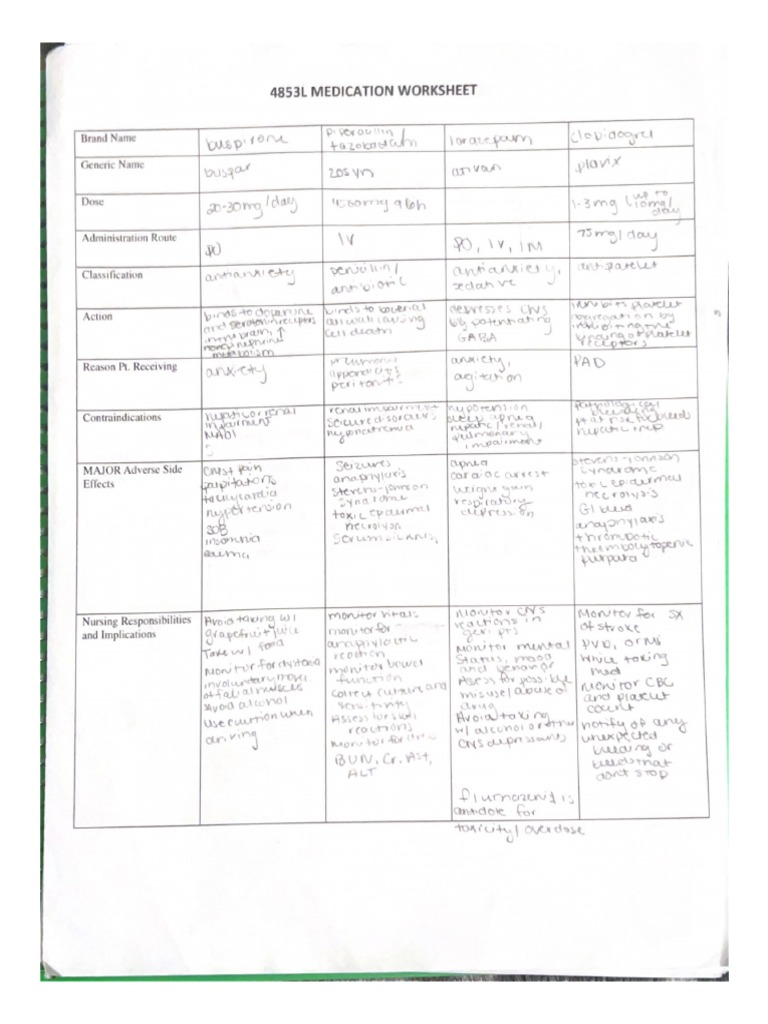 4853L MEDICATION WORKSHEET
Brand Name
buspirone
tazobactam
lorazepam
clopidogrel
Generic Name
buspar
zosyn
ativan
plavix
Dose
20-30mg/day
q6h
1-3mg (up to
10mg/
day
Administration Route
PO
IV
PO, IV, IM
75mg/day
Classification
antianxiety
penicillin/
antibiotic
antianxiety,
sedative
antiplatelet
Action
binds to dopamine
and serotonin receptors
in the brain, ↑
norepinephrine
metabolism
binds to bacterial
cell wall causing
cell death
depresses CNS
by potentiating
GABA
inhibits platelet
aggregation by
inhibiting the
of platelet
receptors
Reason Pt. Receiving
anxiety
pneumonia
appendicitis
anxiety,
agitation
PAD
Contraindications
hepatic or renal
impairment
MAOI
renal impairment
seizure disorders
hyponatremia
hypotension
sleep apnea
hepatic/renal/
pulmonary
impairment
pathological
bleeding
pt at risk for bleed
hepatic imp
MAJOR Adverse Side
Effects
chest pain
palpitations
tachycardia
hypertension
SOB
insomnia
seizures
anaphylaxis
stevens-johnson
syndrome
toxic epidermal
necrolysis
serum sickness
apnea
cardiac arrest
weight gain
respiratory
depression
stevens-johnson
syndrome
toxic epidermal
necrolysis
GI bleed
anaphylaxis
thrombotic
purpura
Nursing Responsibilities
and Implications
Avoid taking w/
grapefruit juice
Take w/ food
Monitor for dystonia
involuntary move
of facial muscles
Avoid alcohol
Use caution when
driving
monitor vitals
monitor for
anaphylactic
reaction
monitor bowel
function
Collect culture and
sensitivity
Assess for skin
reactions
Monitor for
BUN, Cr, AST,
ALT
Monitor CNS
reactions in
geri pts
Monitor mental
status, mood
and behavior
Assess for possible
misuse/abuse of
drug
Avoid taking
w/ alcohol or other
CNS depressants
flumazenil is
antidote for
toxicity/overdose
Monitor for sx
of stroke
PVD, or MI
while taking
med
Monitor CBC
and platelet
count
notify of any
unexpected
bleeding or
bleeds that
don't stop